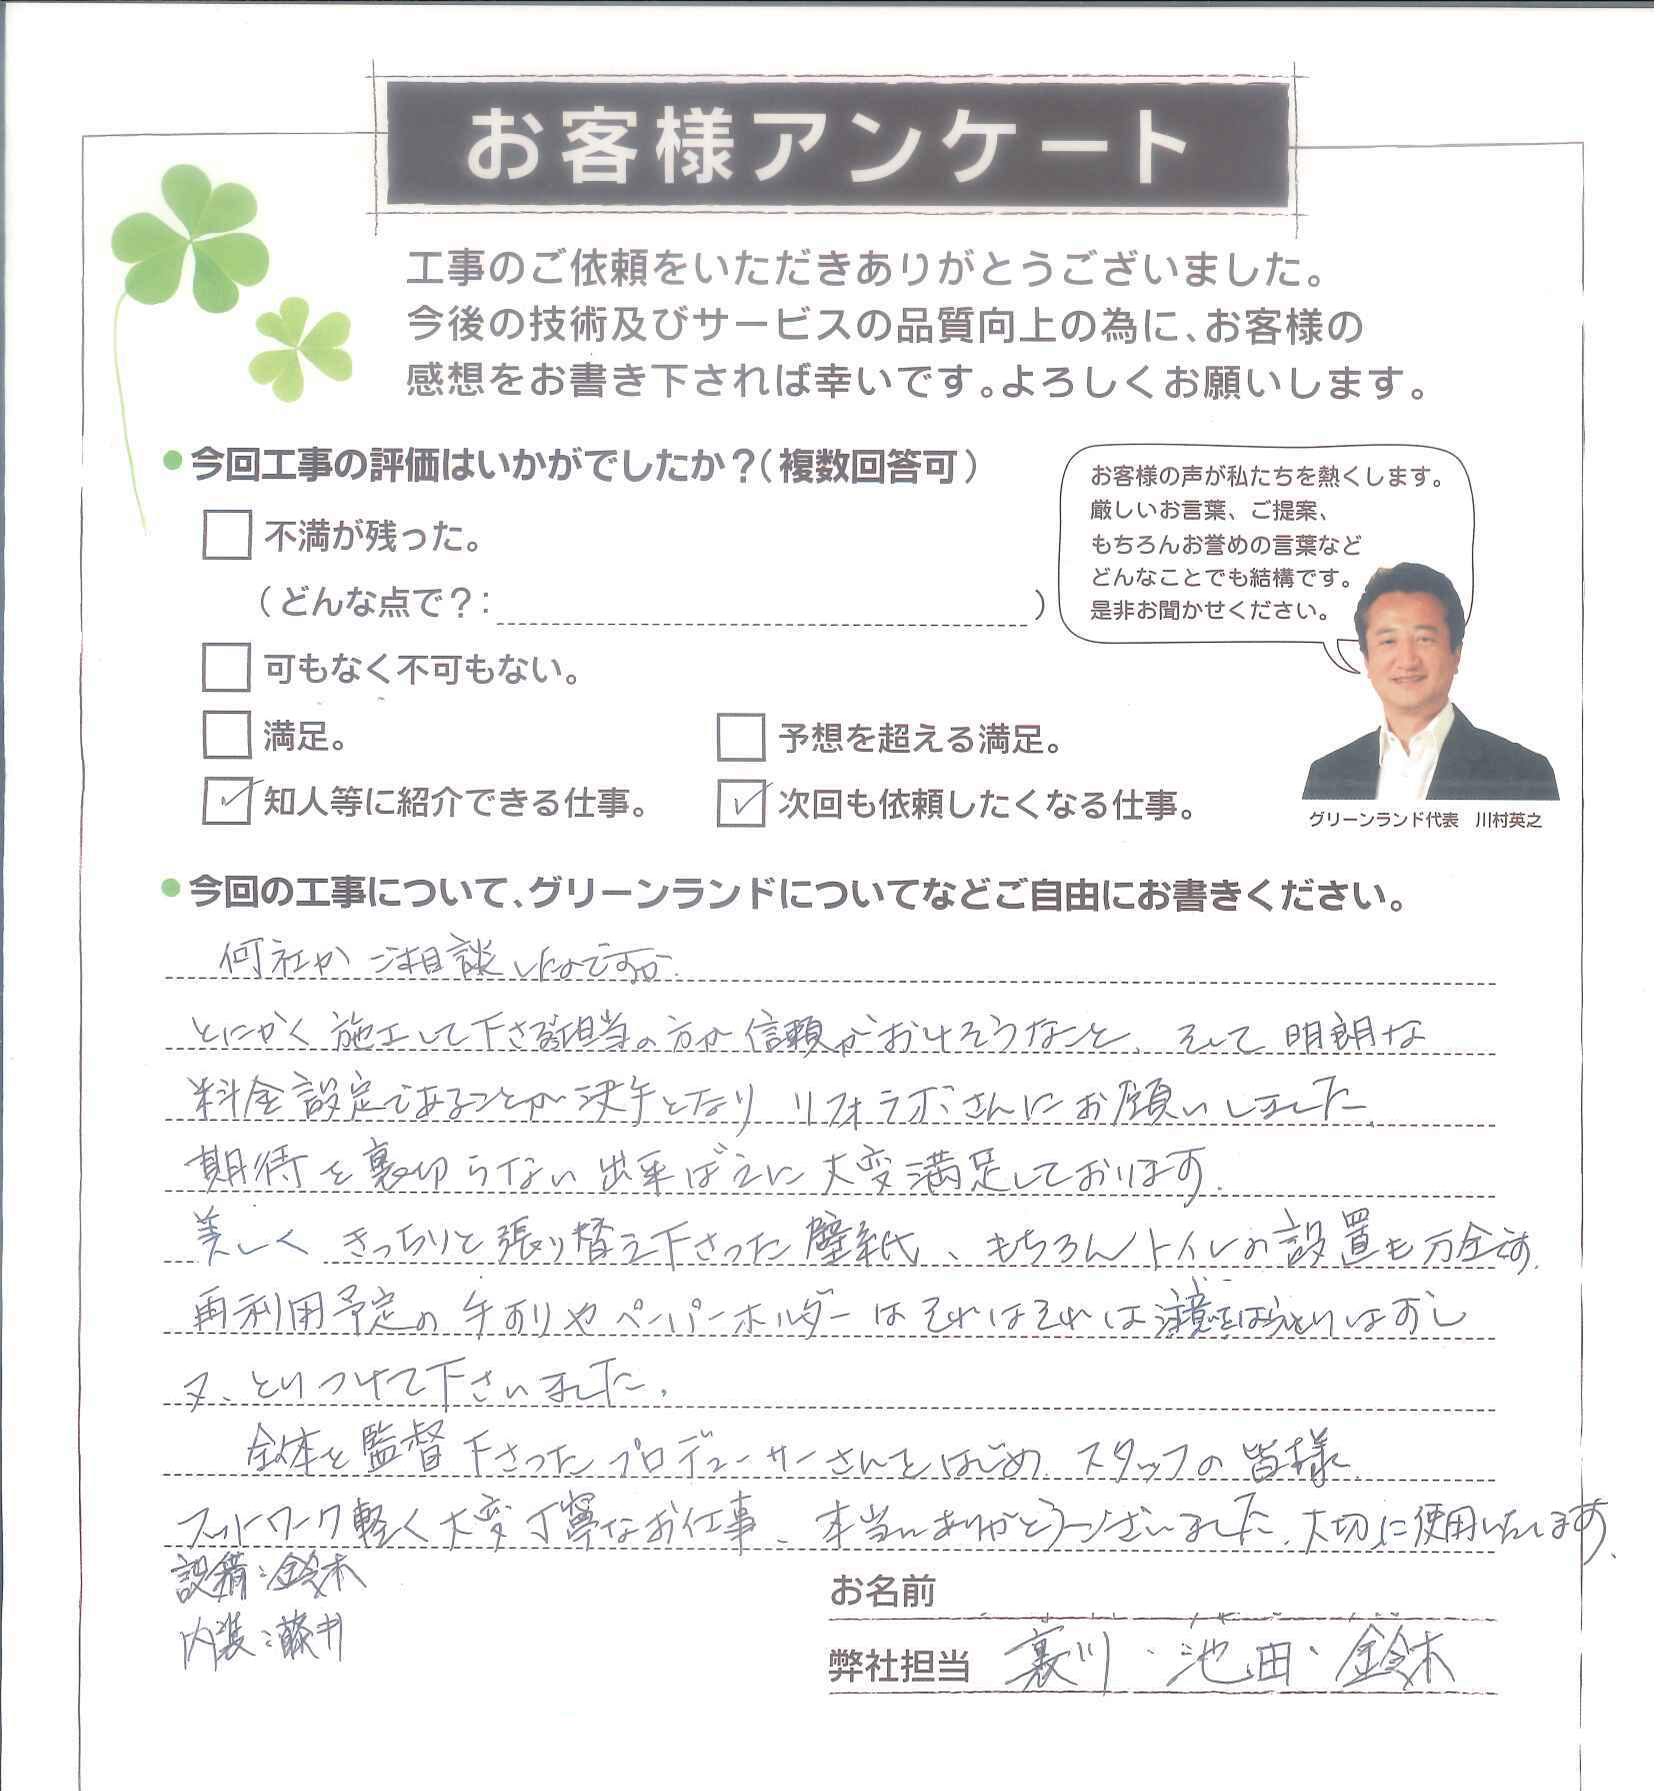 お客様アンケート
工事のご依頼をいただきありがとうございました。
今後の技術及びサービスの品質向上の為に、お客様の
感想をお書き下されば幸いです。よろしくお願いします。
今回工事の評価はいかがでしたか？（複数回答可）
不満が残った。
（どんな点で？：　）
可もなく不可もない。
満足。
予想を超える満足。
知人等に紹介できる仕事。
次回も依頼したくなる仕事。
お客様の声が私たちを熱くします。
厳しいお言葉、ご提案、
もちろんお誉めの言葉など
どんなことでも結構です。
是非お聞かせください。
グリーンランド代表　川村英之
今回の工事について、グリーンランドについてなどご自由にお書きください。
何社かご相談したのですが、
とにかく施工して下さる担当の方が信頼がおけそうなこと、そして明朗な
料金設定であることが決手となり リフォラボさんにお願いしました。
期待を裏切らない出来ばえに大変満足しております。
美しく きっちりと張り替え下さった壁紙、もちろんトイレの設置も万全です。
再利用予定の手すりやペーパーホルダーはそれはそれは注意をはらいとりはずし
又、とりつけて下さいました。
全体を監督下さったプロデューサーさんをはじめ、スタッフの皆様、
フットワーク軽く大変丁寧なお仕事、本当にありがとうございました。大切に使用いたします。
設備：鈴木
内装：藤井
お名前
弊社担当 裏川・池田・鈴木